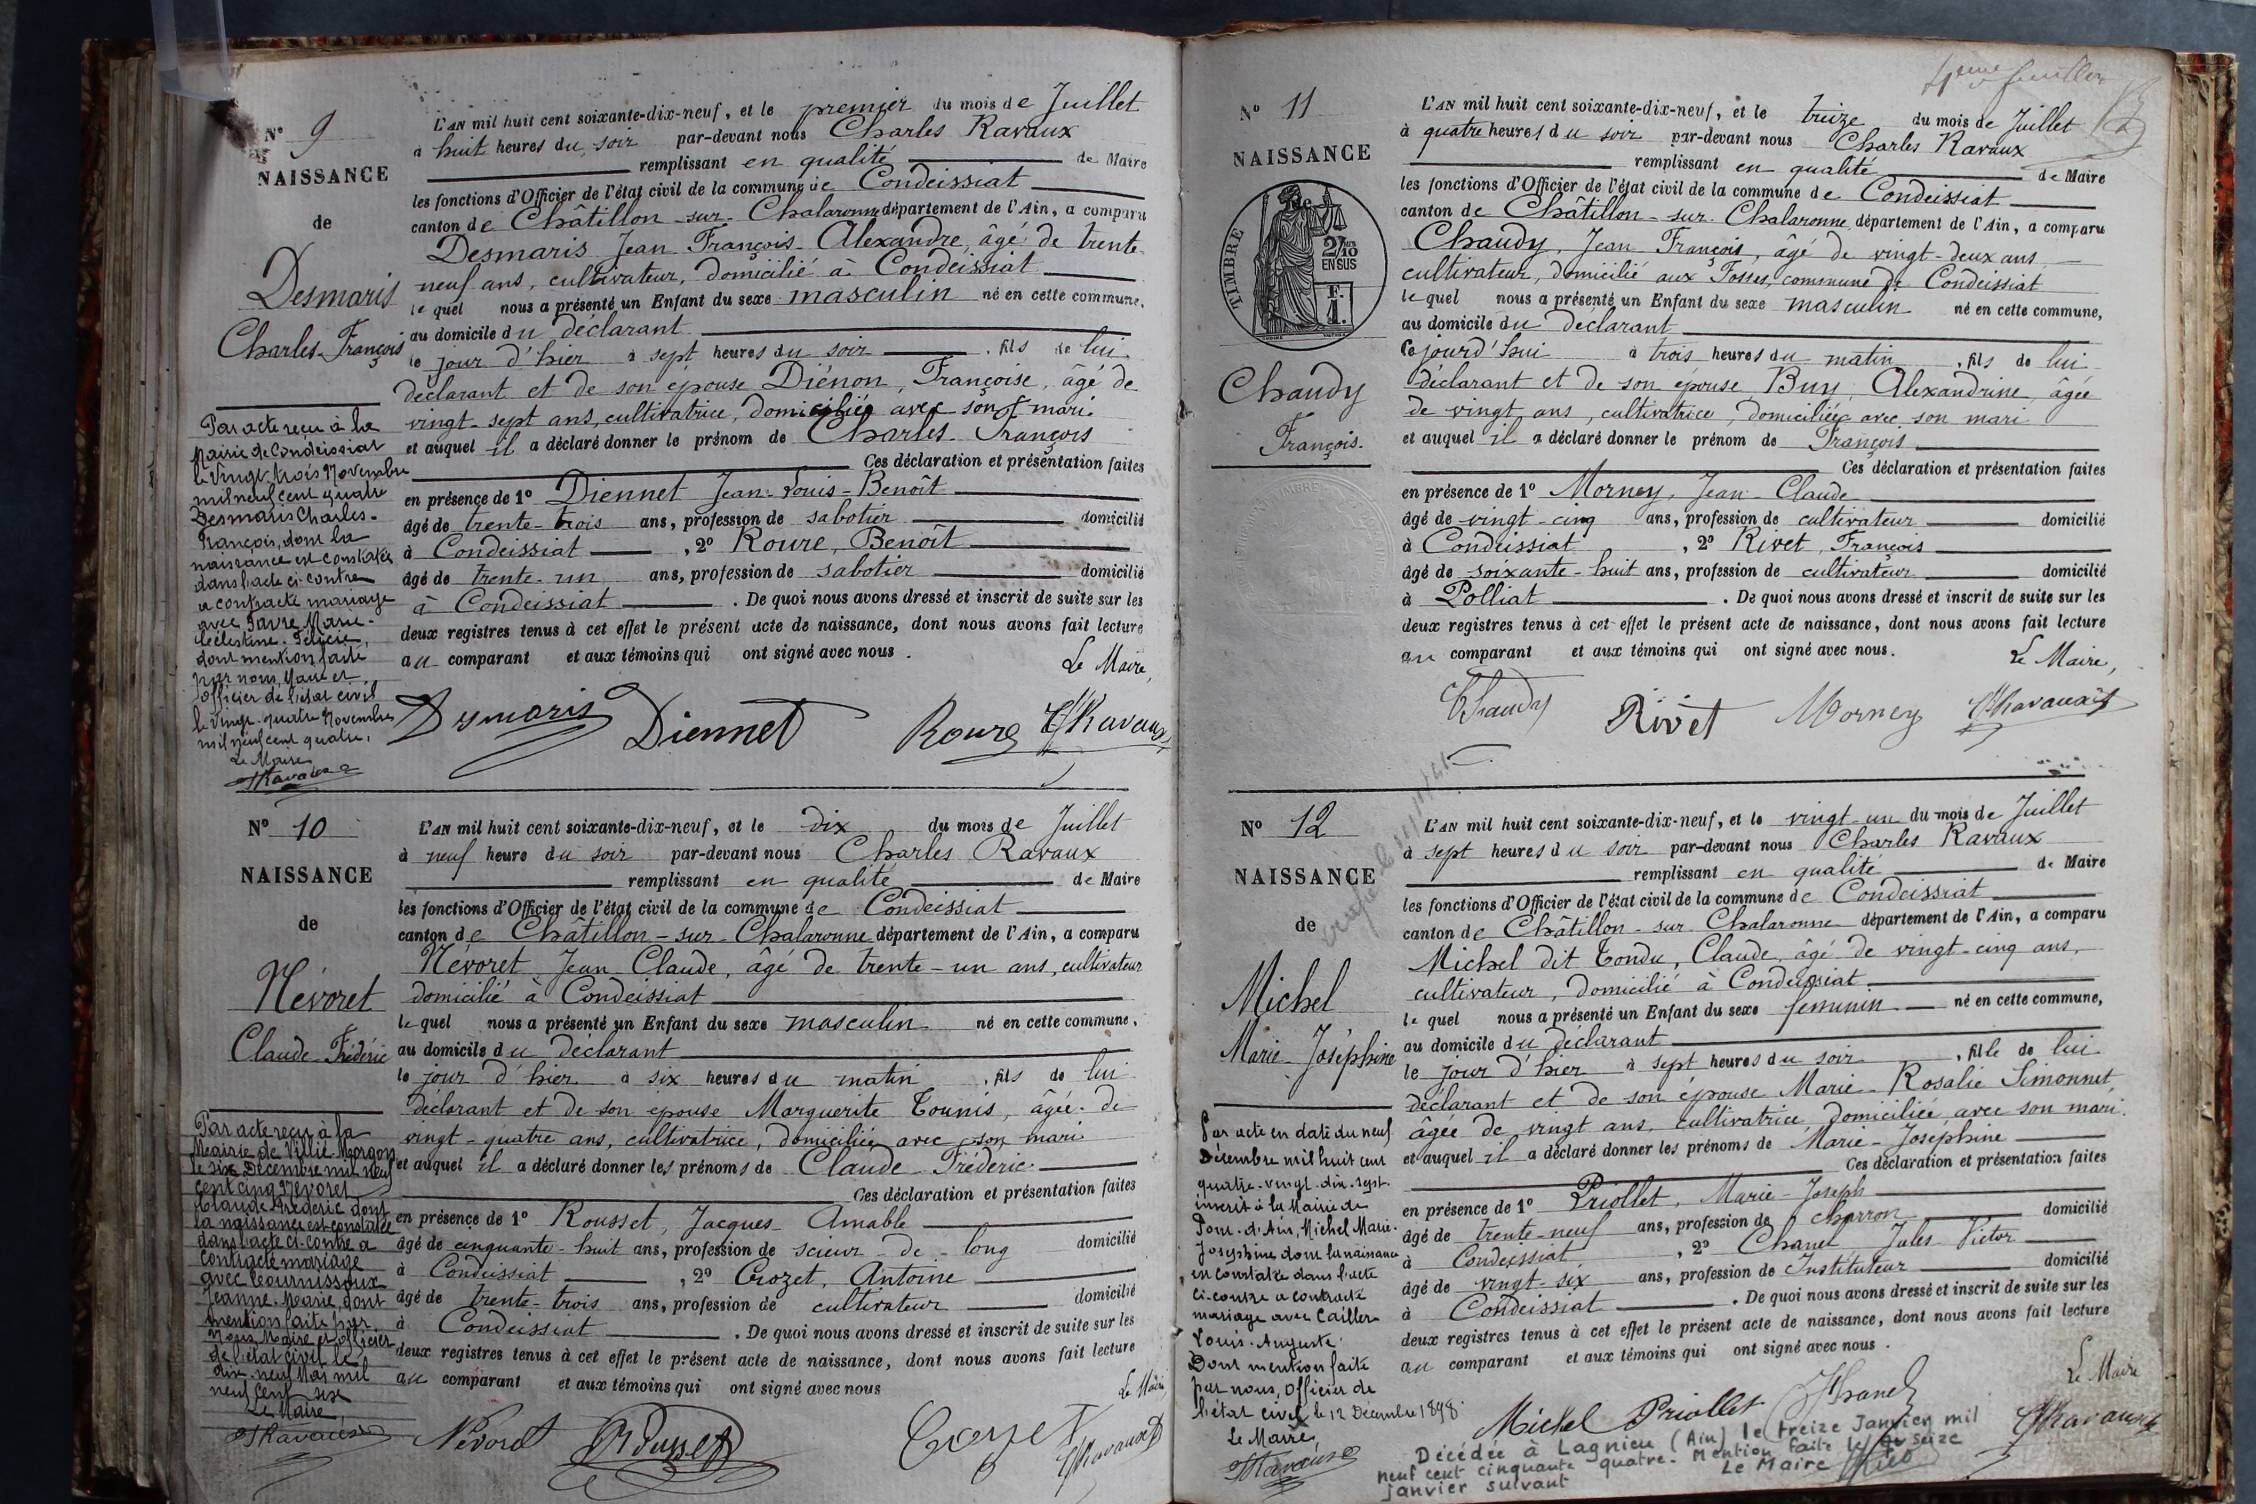 Nº 9
NAISSANCE
de
Desmaris
Charles-François
L'AN mil huit cent soixante-dix-neuf, et le premier du mois de Juillet
à huit heures du soir par-devant nous Charles Ravaux
remplissant en qualité de Maire
les fonctions d'Officier de l'état civil de la commune de Condeissiat
canton de Châtillon-sur-Chalaronne département de l'Ain, a comparu
Desmaris Jean François-Alexandre, âgé de trente
neuf ans, cultivateur, domicilié à Condeissiat
le quel nous a présenté un Enfant du sexe masculin né en cette commune,
au domicile du déclarant
le jour d'hier à sept heures du soir, fils de lui
déclarant et de son épouse Diénon, Françoise, âgé de
vingt-sept ans, cultivatrice, domiciliée avec son mari
et auquel il a déclaré donner le prénom de Charles-François
Ces déclaration et présentation faites
en présence de 1º Diennet Jean-Louis-Benoît
âgé de trente-trois ans, profession de sabotier domicilié
à Condeissiat, 2º Roure, Benoît
âgé de trente-un ans, profession de sabotier domicilié
à Condeissiat. De quoi nous avons dressé et inscrit de suite sur les
deux registres tenus à cet effet le présent acte de naissance, dont nous avons fait lecture
au comparant et aux témoins qui ont signé avec nous.
Le Maire,
Desmaris Diennet Roure Ch Ravaux
Par acte reçu à la
Mairie de Condeissiat
le vingt-trois Novembre
mil neuf cent quatre
Desmaris Charles-
François, dont la
naissance est constatée
dans l'acte ci-contre
a contracté mariage
avec Favre Marie-
Célestine-Félicie,
dont mention faite
par nous, Maire et
officier de l'état civil
le vingt-quatre Novembre
mil neuf cent quatre.
Le Maire
Ch Ravaux
Nº 10
NAISSANCE
de
Névoret
Claude-Frédéric
L'AN mil huit cent soixante-dix-neuf, et le dix du mois de Juillet
à neuf heure du soir par-devant nous Charles Ravaux
remplissant en qualité de Maire
les fonctions d'Officier de l'état civil de la commune de Condeissiat
canton de Châtillon-sur-Chalaronne département de l'Ain, a comparu
Névoret Jean-Claude, âgé de trente-un ans, cultivateur
domicilié à Condeissiat
le quel nous a présenté un Enfant du sexe masculin né en cette commune,
au domicile du déclarant
le jour d'hier à six heures du matin, fils de lui
déclarant et de son épouse Marguerite Tounis, âgée de
vingt-quatre ans, cultivatrice, domiciliée avec son mari
et auquel il a déclaré donner les prénoms de Claude-Fréderic
Ces déclaration et présentation faites
en présence de 1º Rousset, Jacques-Amable
âgé de cinquante-huit ans, profession de scieur-de-long domicilié
à Condeissiat, 2º Crozet, Antoine
âgé de trente-trois ans, profession de cultivateur domicilié
à Condeissiat. De quoi nous avons dressé et inscrit de suite sur les
deux registres tenus à cet effet le présent acte de naissance, dont nous avons fait lecture
au comparant et aux témoins qui ont signé avec nous
Le Maire
Névoret Rousset Crozet Ch Ravaux
Par acte reçu à la
Mairie de Villié-Morgon
le six Décembre mil neuf
cent cinq Névoret
Claude Frédéric dont
la naissance est constatée
dans l'acte ci-contre a
contracté mariage
avec
Jeanne-Marie, dont
mention faite par
nous, Maire et officier
de l'état civil le
dix-neuf Mai mil
neuf cent six
Le Maire
Ch Ravaux
4eme feuillet
Nº 11
NAISSANCE
de
TIMBRE
2/10
EN SUS
F.
1.
Chaudy
François.
L'AN mil huit cent soixante-dix-neuf, et le treize du mois de Juillet
à quatre heures du soir par-devant nous Charles Ravaux
remplissant en qualité de Maire
les fonctions d'Officier de l'état civil de la commune de Condeissiat
canton de Châtillon-sur-Chalaronne, département de l'Ain, a comparu
Chaudy, Jean François, âgé de vingt-deux ans
cultivateur, domicilié aux Fosses, commune de Condeissiat
le quel nous a présenté un Enfant du sexe masculin né en cette commune,
au domicile du déclarant
Ce jourd'hui à trois heures du matin, fils de lui
déclarant et de son épouse Buy, Alexandrine, âgée
de vingt ans, cultivatrice, domiciliée avec son mari
et auquel il a déclaré donner le prénom de François
Ces déclaration et présentation faites
en présence de 1º Morney, Jean-Claude
âgé de vingt-cinq ans, profession de cultivateur domicilié
à Condeissiat, 2º Rivet, François
âgé de soixante-huit ans, profession de cultivateur domicilié
à Polliat. De quoi nous avons dressé et inscrit de suite sur les
deux registres tenus à cet effet le présent acte de naissance, dont nous avons fait lecture
au comparant et aux témoins qui ont signé avec nous.
Le Maire,
Chaudy Rivet Morney Ch Ravaux
Nº 12
NAISSANCE
de
Michel
Marie-Joséphine
L'AN mil huit cent soixante-dix-neuf, et le vingt-un du mois de Juillet
à sept heures du soir par-devant nous Charles Ravaux
remplissant en qualité de Maire
les fonctions d'Officier de l'état civil de la commune de Condeissiat
canton de Châtillon-sur-Chalaronne département de l'Ain, a comparu
Michel dit Tondu, Claude, âgé de vingt-cinq ans,
cultivateur, domicilié à Condeissiat.
le quel nous a présenté un Enfant du sexe feminin né en cette commune,
au domicile du déclarant
le jour d'hier à sept heures du soir, fille de lui
déclarant et de son épouse Marie-Rosalie Simonnet,
âgée de vingt ans, cultivatrice, domiciliée avec son mari.
et auquel il a déclaré donner les prénoms de Marie-Joséphine
Ces déclaration et présentation faites
en présence de 1º Priollet, Marie-Joseph
âgé de trente-neuf ans, profession de charron domicilié
à Condeissiat, 2º Chanel Jules Victor
âgé de vingt-six ans, profession de Instituteur domicilié
à Condeissiat. De quoi nous avons dressé et inscrit de suite sur les
deux registres tenus à cet effet le présent acte de naissance, dont nous avons fait lecture
au comparant et aux témoins qui ont signé avec nous.
Le Maire
Michel Priollet JChanel Ch Ravaux
Par acte en date du neuf
Décembre mil huit cent
quatre-vingt-dix-sept
inscrit à la Mairie de
Pont-d'Ain, Michel Marie-
Joséphine dont la naissance
est constatée dans l'acte
ci-contre a contracté
mariage avec Cailler
Louis-Auguste.
Dont mention faite
par nous, Officier de
l'état civil le 12 Décembre 1898.
Le Maire,
Ch Ravaux
Décédée à Lagnieu (Ain) le treize Janvier mil
neuf cent cinquante quatre. Mention faite le seize
janvier suivant Le Maire